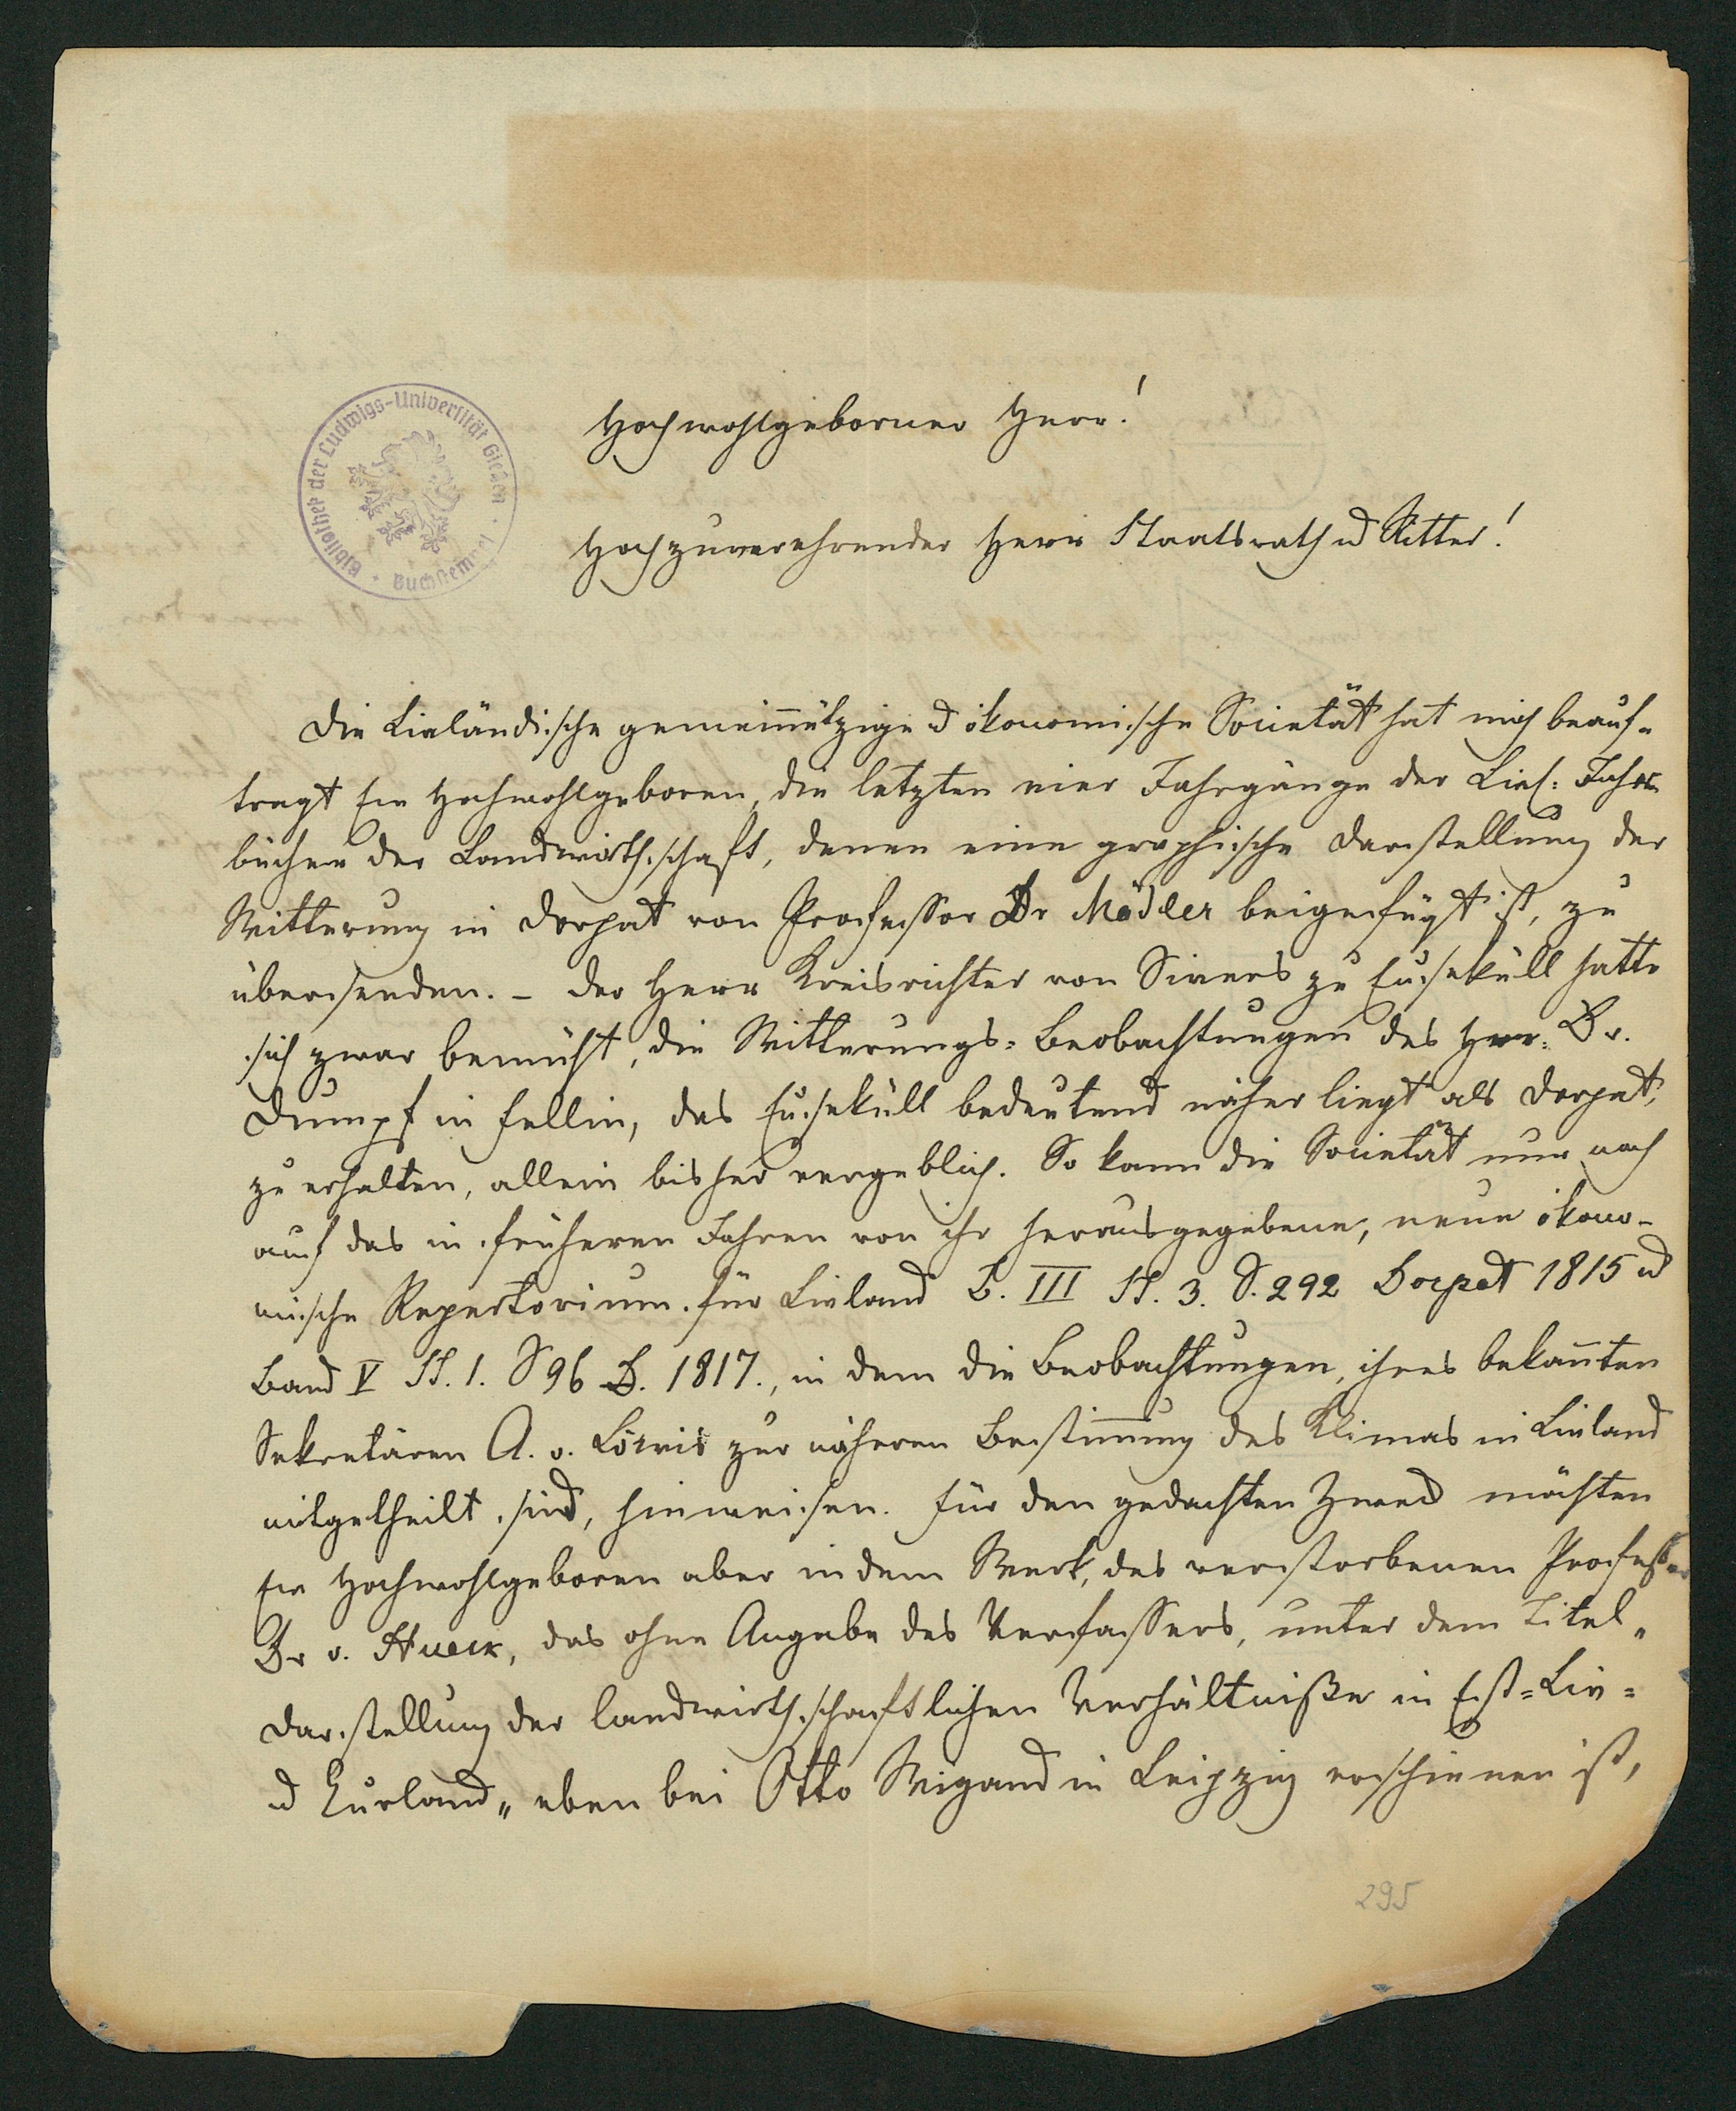 Hochwohlgeborner Herr!
Bibliothek der Ludwigs-Universität Gießen · Buchstempel ·
Hochzuverehrender Herr Staatsrath u Ritter!
Die Livländische gemeinnützige u ökonomische Societät hat mich beauf-
tragt Ew Hochwohlgeboren, die letzten vier Jahrgänge der Livl: Jahr-
bücher der Landwirthschaft, denen eine graphische Darstellung der
Witterung in Dorpat von Professor Dr Mädler beigefügt ist, zu
übersenden. – Der Herr Kreisrichter von Sivers zu Euseküll hatte
sich zwar bemüht, die Witterungs-Beobachtungen des Herr: Dr.
Dumpf in Fellin, das Euseküll bedeutend näher liegt als Dorpat,
zu erhalten, allein bisher vergeblich. So kann die Societät nur noch
auf das in früheren Jahren von ihr herausgegebene, neue ökono-
mische Repertorium für Livland B. III St. 3. S. 292 Dorpat 1815 u
Band V St. 1. S 96 D. 1817., in dem die Beobachtungen, ihres bekannten
Sekretären A. v. Löwis zur näheren Bestimmung des Klimas in Livland
mitgetheilt sind, hinweisen. Für den gedachten Zweck möchten
Ew Hochwohlgeboren aber in dem Werk, des verstorbenen Professor
Dr v. Hueck, das ohne Angabe des Verfassers, unter dem Titel „
Darstellung der landwirthschaftlichen Verhältniße in Est- Liv-
u Curland„ eben bei Otto Wigand in Leipzig erschienen ist,
295